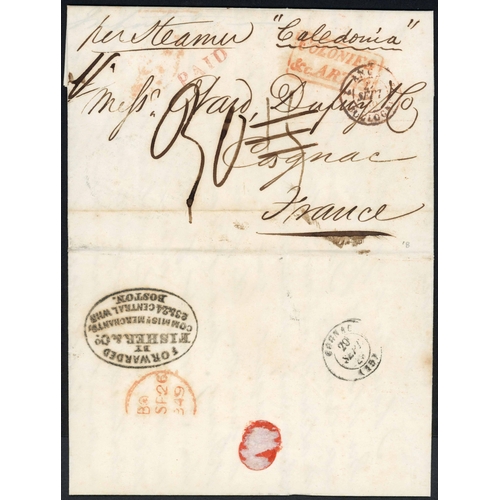 per Steamer "Caledonia"
PAID
COLONIES
&c. ART.
Messrs Otard, Dupuy & Co
Cognac
France
FORWARDED
BY
FISHER & Co.
COMMISN MERCHANTS
23 & 24 CENTRAL WHF
BOSTON.
COGNAC
20
SEPT
(15)
SP 26